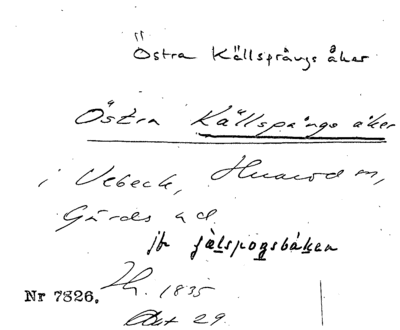 Östra Källsprångs åker
Östra Källspångs åker
i Vebeck, Huaröd sn,
Gärds hd
jfr jälspogsbáken
Nr 7826.
Lh. 1835
Akt 29.